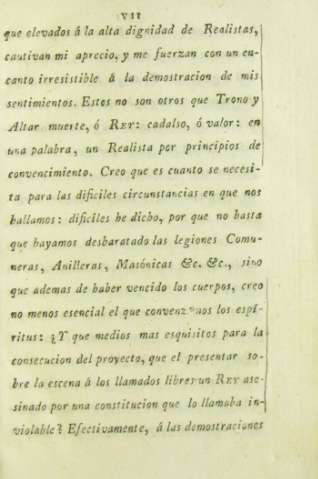 VII
que elevados á la alta dignidad de Realistas,
cautivan mi aprecio, y me fuerzan con un en-
canto irresistible á la demostracion de mis
sentimientos. Estos no son otros que Trono y
Altar muerte, ó REY: cadalso, ó valor: en
una palabra, un Realista por principios de
convencimiento. Creo que es cuanto se necesi-
ta para las dificiles circunstancias en que nos
hallamos: dificiles he dicho, por que no basta
que hayamos desbaratado las legiones Comu-
neras, Anilleras, Masónicas &c. &c., sino
que ademas de haber vencido los cuerpos, creo
no menos esencial el que convenzamos los espí-
ritus: ¿Y que medios mas esquisitos para la
consecucion del proyecto, que el presentar so-
bre la escena á los llamados libres un REY ase-
sinado por una constitucion que lo llamaba in-
violable? Efectivamente, á las demostraciones